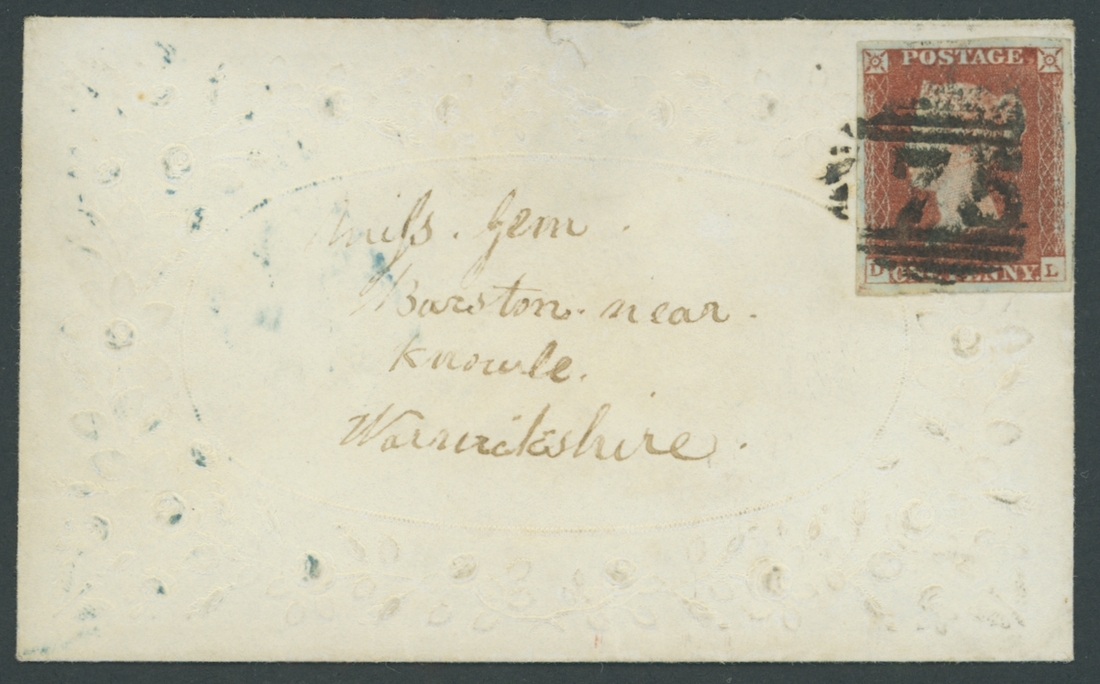 POSTAGE
75
D ONE PENNY L
Miſs. Gem.
Barston. near.
Knowle.
Warwickshire.